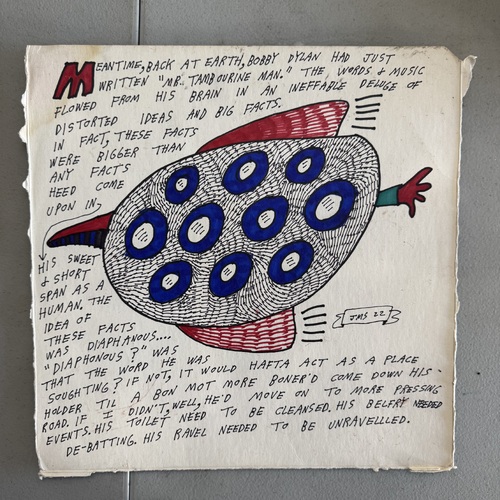 MEANTIME, BACK AT EARTH, BOBBY DYLAN HAD JUST
WRITTEN "MR. TAMBOURINE MAN." THE WORDS & MUSIC
FLOWED FROM HIS BRAIN IN AN INEFFABLE DELUGE OF
DISTORTED IDEAS AND BIG FACTS.
IN FACT, THESE FACTS
WERE BIGGER THAN
ANY FACTS
HEED COME
UPON IN
HIS SWEET
& SHORT
SPAN AS A
HUMAN. THE
IDEA OF
THESE FACTS
WAS DIAPHANOUS....
"DIAPHONOUS?" WAS
THAT THE WORD HE WAS
SOUGHTING? IF NOT, IT WOULD HAFTA ACT AS A PLACE
HOLDER TIL A BON MOT MORE BONER'D COME DOWN HIS
ROAD. IF I DIDN'T, WELL, HE'D MOVE ON TO MORE PRESSING
EVENTS. HIS TOILET NEED TO BE CLEANSED. HIS BELFRY NEEDED
DE-BATTING. HIS RAVEL NEEDED TO BE UNRAVELLED.
JMS 22